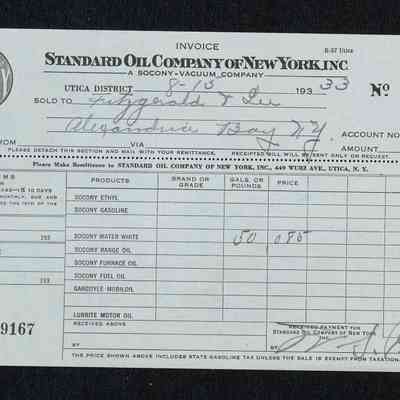 INVOICE
STANDARD OIL COMPANY OF NEW YORK, INC.
A SOCONY-VACUUM COMPANY
UTICA DISTRICT 8-15 1933 33 No
SOLD TO Fitzgerald & Lee
Alexandria Bay N.Y. ACCOUNT NO
FROM VIA AMOUNT
PLEASE DETACH THIS SECTION AND MAIL WITH YOUR REMITTANCE. RECEIPTED BILL WILL BE SENT ONLY ON REQUEST.
Please Make Remittance to STANDARD OIL COMPANY OF NEW YORK, INC., 449 WURZ AVE., UTICA, N. Y.
PRODUCTS BRAND OR GRADE GALS. OR POUNDS PRICE
SOCONY ETHYL
SOCONY GASOLINE
193 SOCONY WATER WHITE 50 .085
SOCONY RANGE OIL
193 SOCONY FURNACE OIL
SOCONY FUEL OIL
GARGOYLE MOBILOIL
LUBRITE MOTOR OIL
9167
RECEIVED ABOVE
BY
RECEIVED PAYMENT FOR
STANDARD OIL COMPANY OF NEW YORK
INC.
THE PRICE SHOWN ABOVE INCLUDES STATE GASOLINE TAX UNLESS THE SALE IS EXEMPT FROM TAXATION